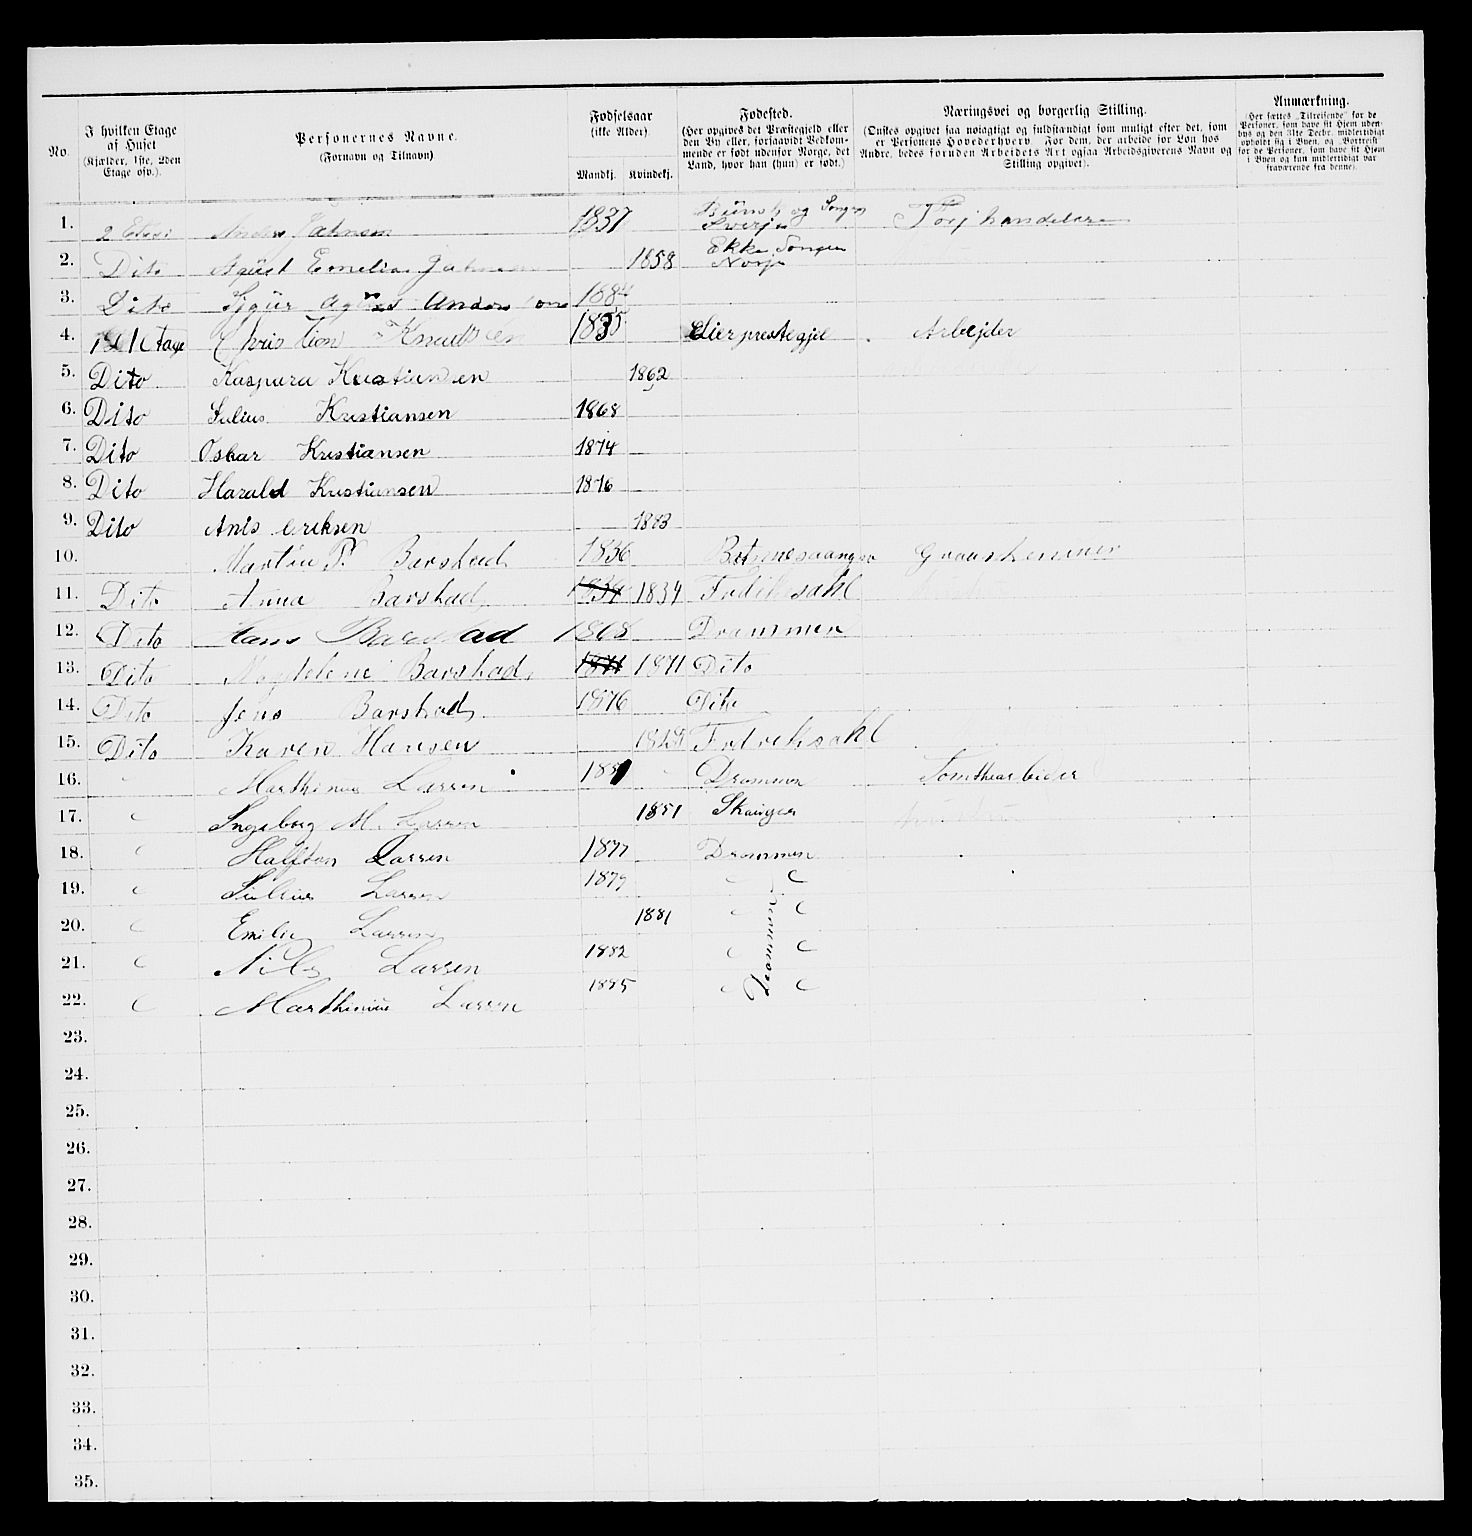 No.
I hvilken Etage af Huset (Kjælder, 1ste, 2den Etage osv.).
Personernes Navne. (Fornavn og Tilnavn)
Fødselsaar (ikke Alder)
Mandkj. Kvindekj.
Fødested. (Her opgives det Præstegjeld eller den By eller, forsaavidt Vedkommende er født udenfor Norge, det Land, hvor han (hun) er født.)
Næringsvei og borgerlig Stilling. (Ønskes opgivet saa nøiagtigt og fuldstændigt som muligt efter det, som er Personens Hovederhverv. For dem, der arbeide for Løn hos Andre, bedes foruden Arbeidets Art ogsaa Arbeidsgiverens Navn og Stilling opgivet).
Anmærkning. (Her sættes „Tilreisende“ for de Personer, som have sit Hjem udenbys og den 31te Decbr. midlertidigt opholdt sig i Byen, og „Bortreist“ for de Personer, som have sit Hjem i Byen og kun midlertidigt var fraværende fra denne).
1. 2 1837 Sverje Torjhandelare
2. Dito Emelia 1858 Ekke Songen Norje
3. Dito 1884
4. 1 Etage Christian Knudsen 1835 Lier prestegjel Arbejder
5. Dito Kaspara Kristiansen 1862
6. Dito Julius Kristiansen 1868
7. Dito Oskar Kristiansen 1874
8. Dito Harald Kristiansen 1876
9. Dito Anis Eriksen 1883
10. Martin P. Barstad 1836
11. Dito Anna Barstad 1834 1834 Fredriksahl
12. Dito Hans Barstad 1868 Drammen
13. Dito Magdelene Barstad 1871 1871 Dito
14. Dito Jens Barstad 1876 Dito
15. Dito Karen Hansen Fredriksahl
16. Marthinus Larsen Drammen Tomthearbeider
17. Ingeborg M. Larsen 1851 Skauger
18. Halfdan Larsen 1877 Drammen
19. Julius Larsen 1879
20. Emilie Larsen 1881
21. Nils Larsen 1882
22. Marthinius Larsen 1885 Drammen
23.
24.
25.
26.
27.
28.
29.
30.
31.
32.
33.
34.
35.